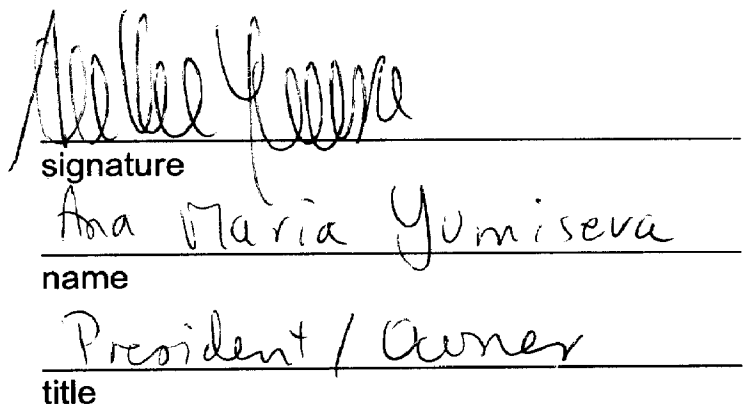 signature
Ana Maria Yumiseva
name
President / Owner
title